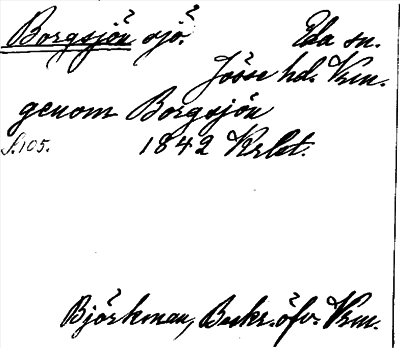 Borgsjön sjö. Eda sn.
Jösse hd. Vrm.
genom Borgsjön
S.105. 1842 Krlst.
Björkman, Beskr. öfv. Vrm.